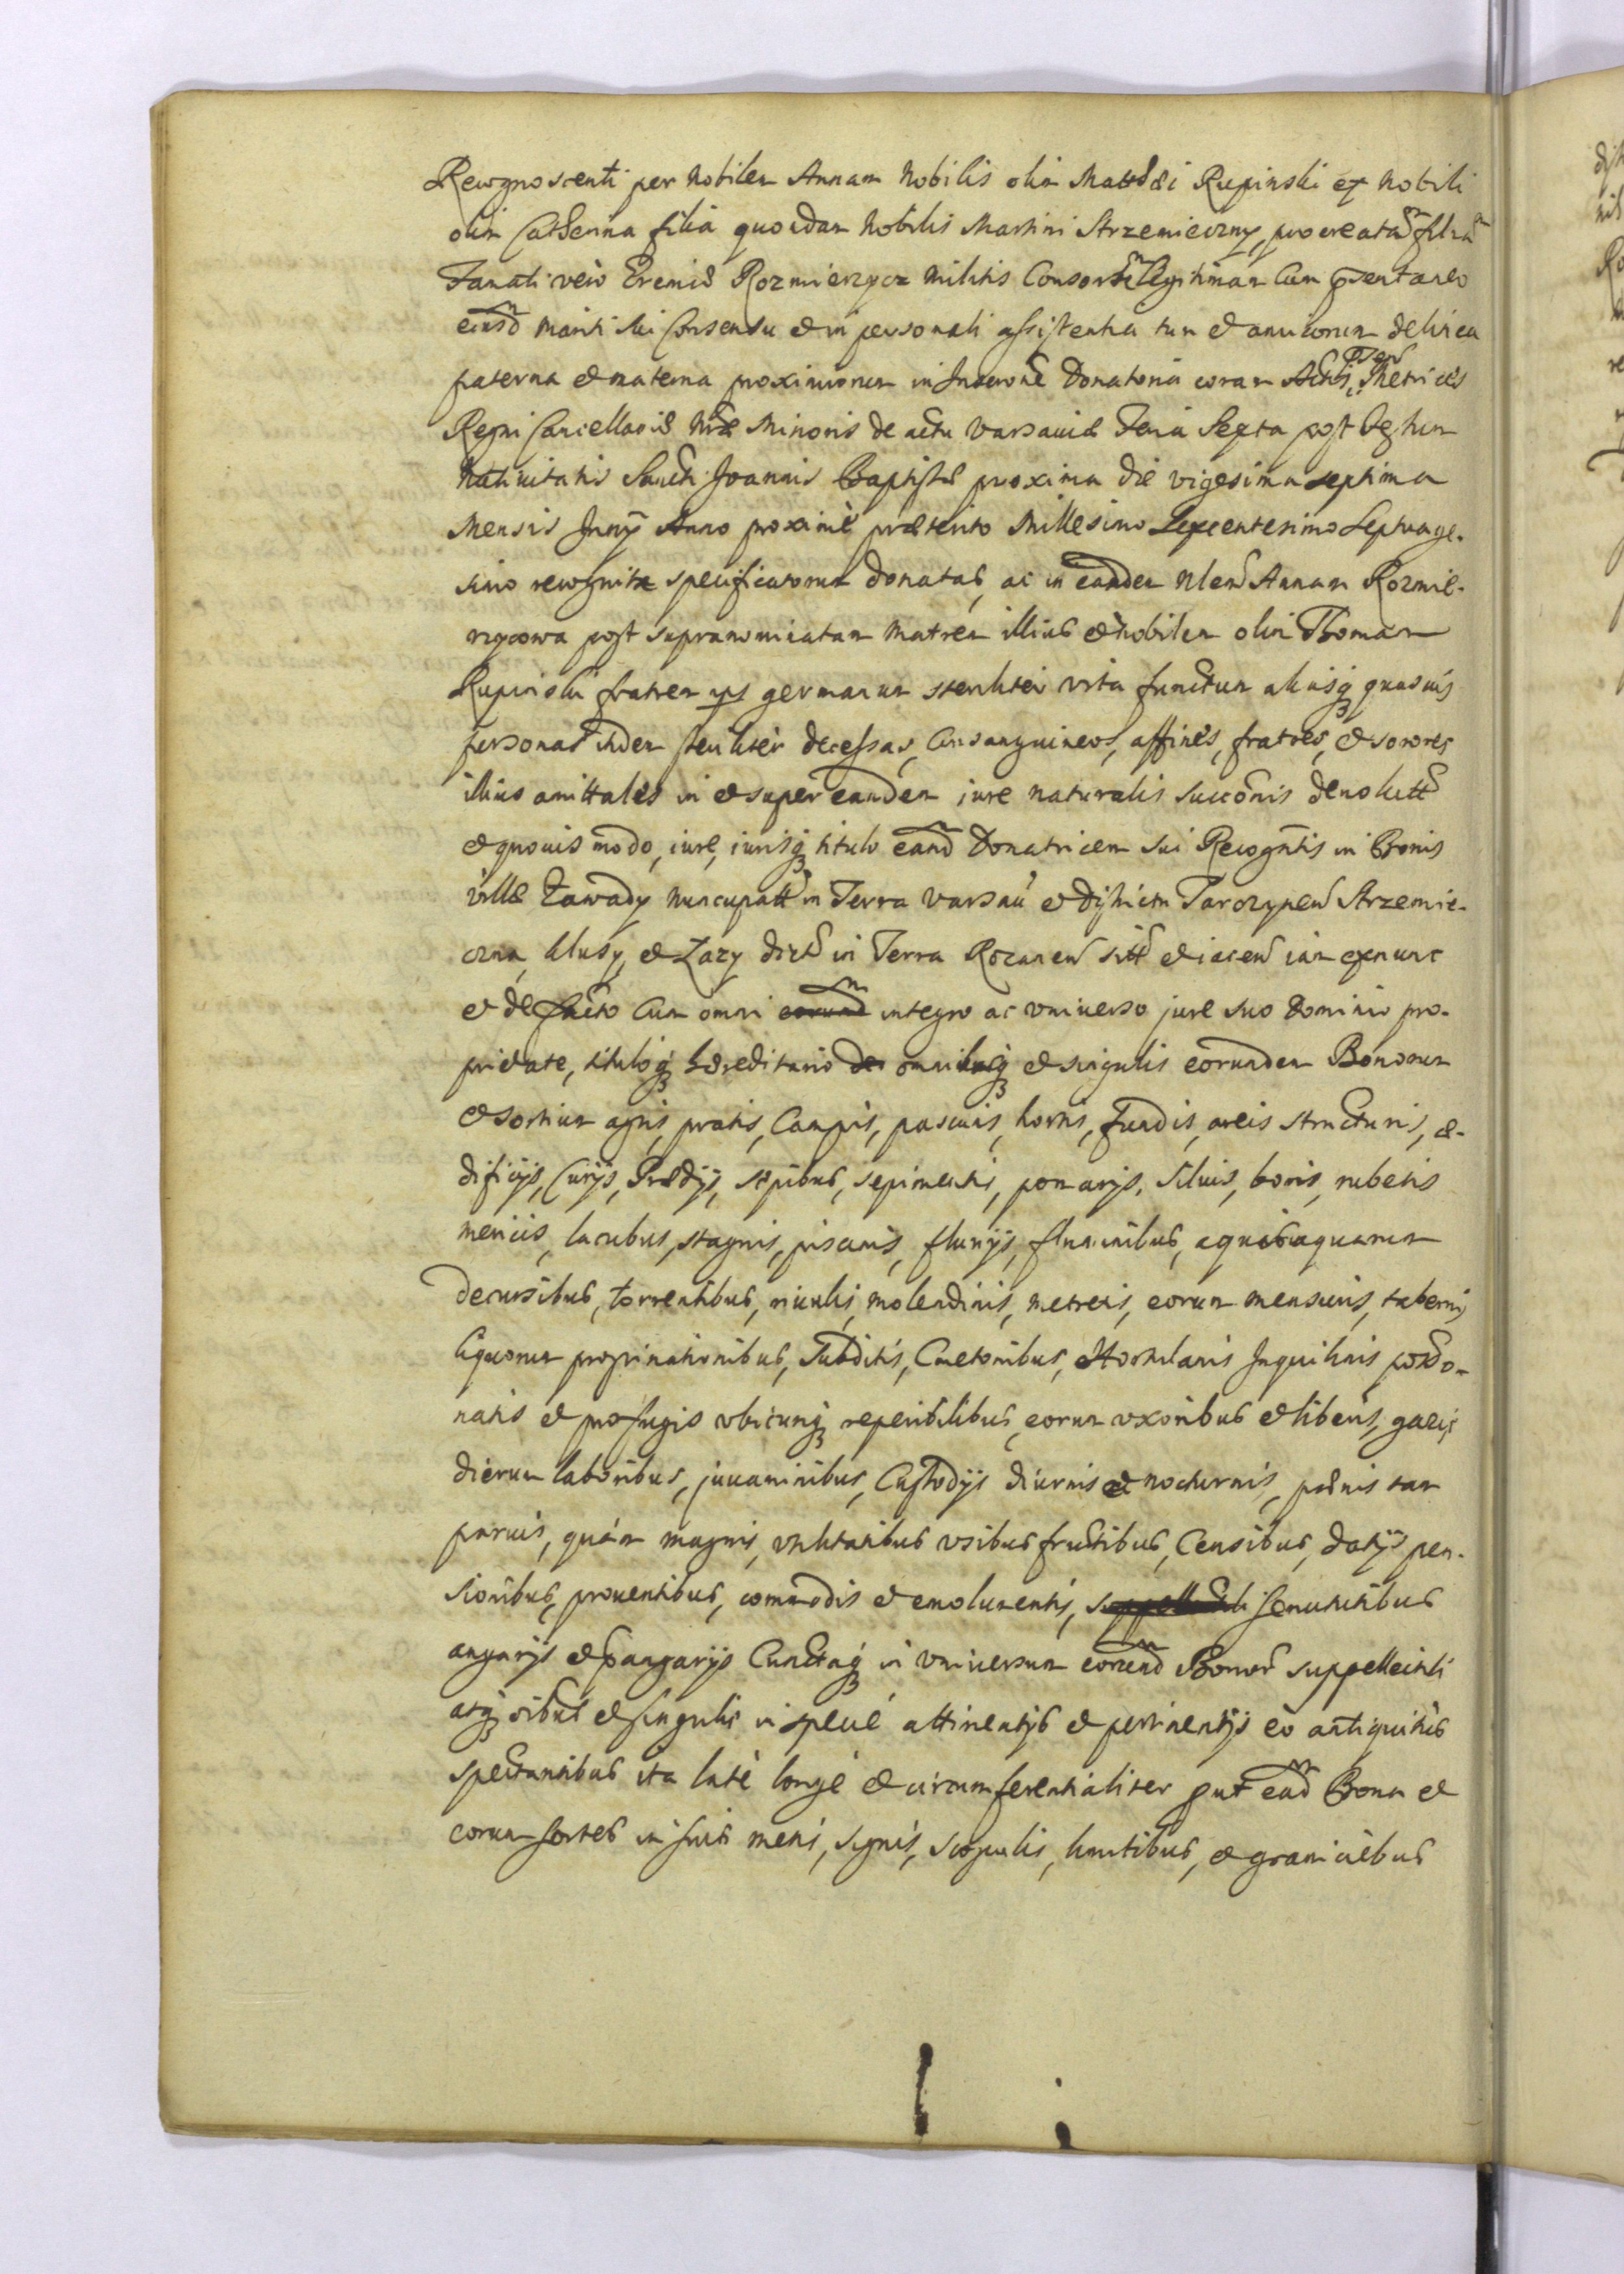 Recognoscenti per Nobilem Annam Nobilis olim Matthæi Rupinski ex Nobili
olim Catherina filia quondam Nobilis Martini Strzemieczny procreatã filiã
Famati verò Eremiæ Rozmierzycz Militis Consortẽ Legitimam Cum
eiusd mariti sui Consensu et in personali assistentia tum et amicorum de linea
paterna et materna proximiorum in Inscrõne Donatoria coram Actis Metrices
Regni Cancellariæ Mræ Minoris de actu Varsaviæ Feria Sexta post festum
Nativitatis Sancti Joannis Baptistæ proxima die vigesima septima
Mensis Junij Anno proximè præterito Millesimo Sexcentesimo Septuage-
simo recognita specificatorum donatas, ac in eandem Annam Rozmie-
rzycowa post supranominatam matrem illius et Nobilem olim Thomam
Rupinski fratrem germanum steriliter vita functum aliasq quasvis
personas itidem steriliter decessas, Consanguineos, affines, fratres, et sorores
illius amittales in et super eandem iure naturalis succõnis devolutt
et quovis modo, iure, iurisq titulo eand Donatricem sui Recogntis in Bonis
villæ Zawady nuncupatt in Terra Varsav et districtu Tarczynen Strzemie-
czna, Klusy, et Zazy dict in Terra Rozanen sitt et iacen iam exnunc
et de facto Cum omni eorund integro ac universo jure suo Dominio pro-
prietate, tituloq hæreditario de omnibusq et singulis eorundem Bonorum
et sortium agris, pratis, Campis, pascuis, hortis, fundis, areis structuris, æ-
dificijs, Curijs, Prædijs, sepibus, sepimentis, pomarijs, Silvis, boris, rubetis
mericis, lacubus, stagnis, piscinis, fluvijs, fluminibus, aquis aquarum
decursibus, torrentibus, rivulis, molendinis, metretis, eorum mensuris, tabernis
liquorum propinationibus, Subditis, Cmetonibus, Hortulanis Inquilinis
et profugis ubicunq reperibilibus, eorum uxoribus et liberis,
dierum laboribus, juvaminibus, Custodijs diurnis et nocturnis, pænis tam
parvis, quàm magnis, utilitatibus usibus fructibus, Censibus, datijs pen-
sionibus, proventibus, commodis et emolumentis, servitutibus
angarijs et pangarijs Cunctaq in universum eorund Bonor suppellectili
atq oibus et singulis in specie attinentijs et pertinentijs eò antiquitùs
spectantibus ita latè longè et circumferentialiter put ead Bona et
eorum sortes in suis metis, signis, scopulis, limitibus, et graniciebus